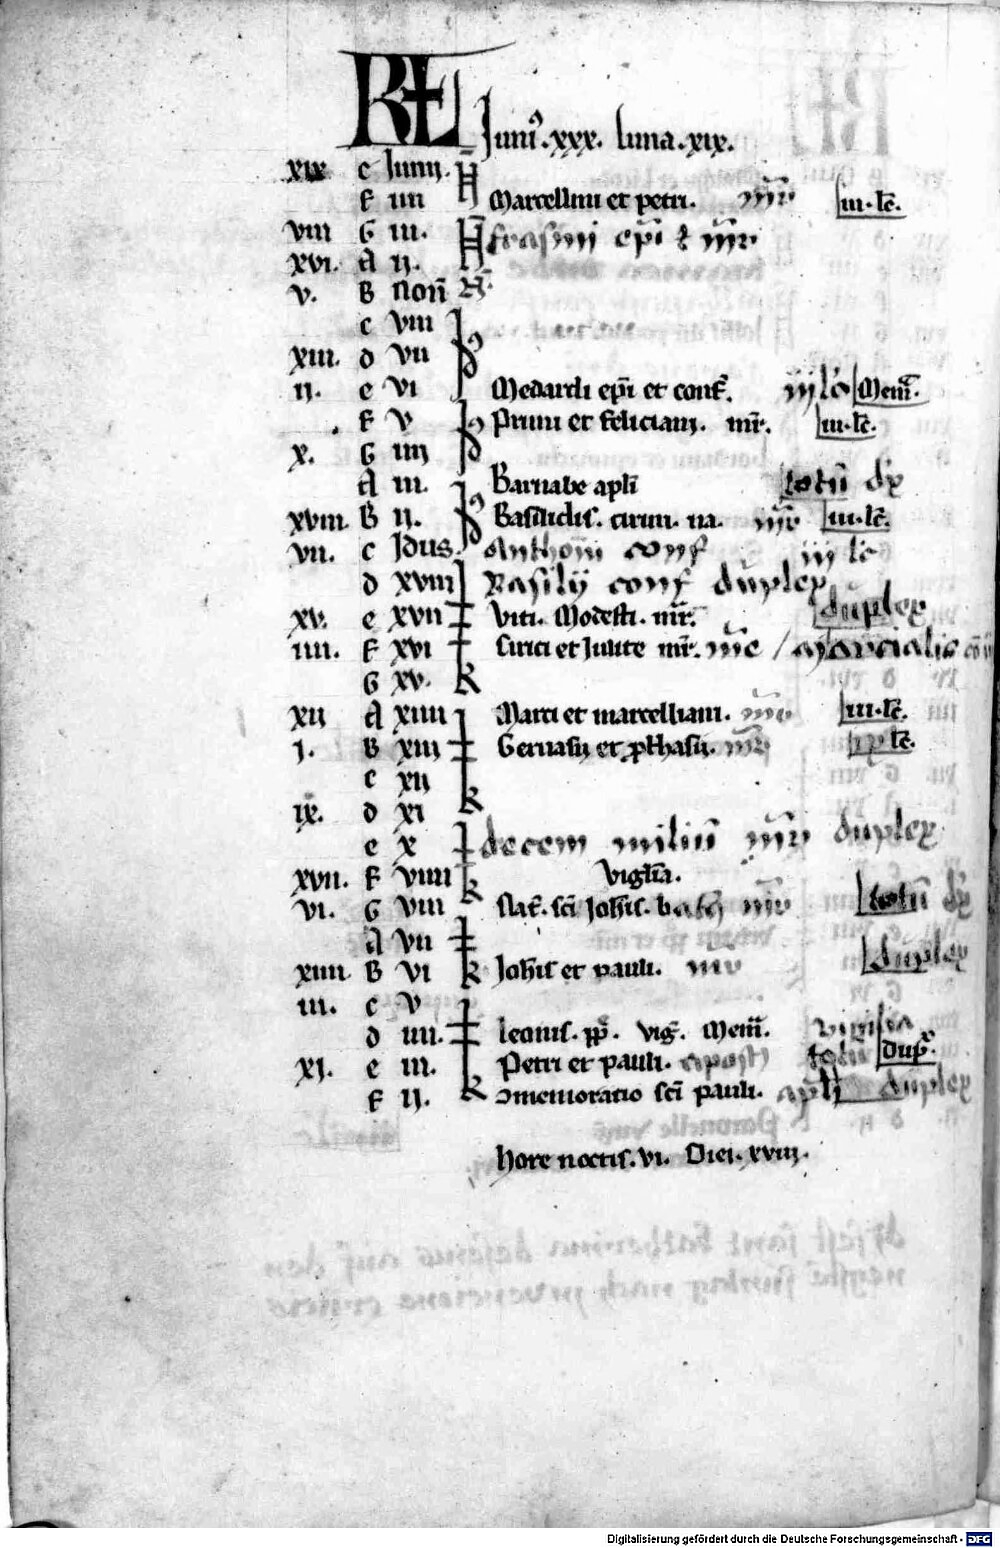 KL Junius .xxx. luna .xix.
xix e Junij.
F iiii Marcellini et petri. mr iii. lc.
viii G iii. Erasmi epi & mr
xvi. A ij.
v. B Non
c viii
xiii. d vii
ij. e vi Medardi epi et conf. iij lc Mem.
F v Primi et feliciani. mr. iii. lc.
x. G iiii
A iii. Barnabe apli totu dx
xviii B ij. Basilidis. cirini. na. mr iii. lc.
vii. c Idus. Anthonii conf iij lc
d xviii Basilij conf duplex
xv. e xvii Viti. Modesti. mr. duplex
iiii. F xvi Cirici et Julite mr. / Marcialis
G xv.
xii A xiiii Marci et marcelliani. iii. lc.
j. B xiii Geruasii et prothasii. mr lc.
c xii
ix. d xi
e x decem miliu mr duplex
xvii. F viiii Viglia.
vi. G viii Nat. sci Johis. bapt totu dx
A vii
xiiii B vi Johis et pauli. mr duplex
iii. c v
d iiii. Leonis. pp. vig. Mem. vigilia
xj. e iii. Petri et pauli. apost totu dup.
F ij. 9memoratio sci pauli. apli duplex
hore noctis. vi. Diei. xviii.
Digitalisierung gefördert durch die Deutsche Forschungsgemeinschaft - DFG